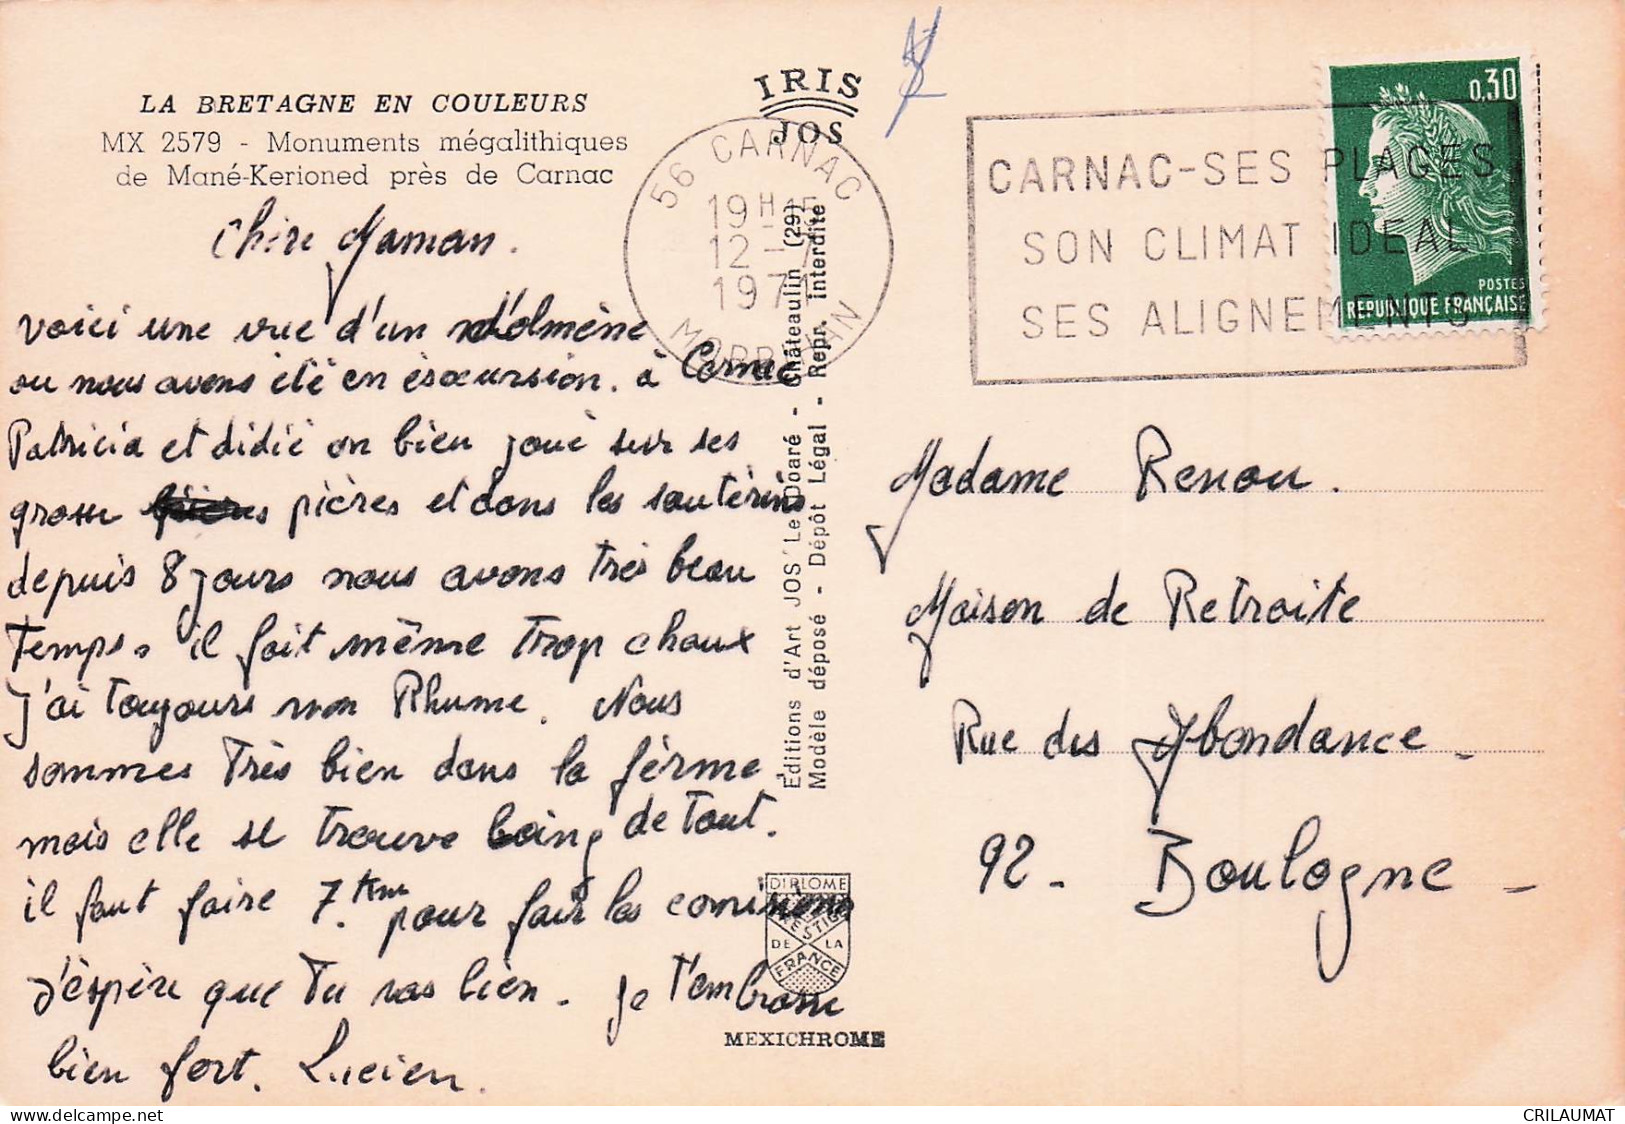 LA BRETAGNE EN COULEURS
MX 2579 - Monuments mégalithiques
de Mané-Kerioned près de Carnac
IRIS
JOS
56 CARNAC
19H
12-7
1971
MORBIHAN
CARNAC-SES PLAGES
SON CLIMAT IDEAL
SES ALIGNEMENTS
0,30
POSTES
REPUBLIQUE FRANÇAISE
Chère Maman.
voici une vue d'un d'olmène
ou nous avons été en éscursion. à Carnac
Patricia et didié on bien joué sur ses
grosse pières et dans les soutérins
depuis 8 jours nous avons très beau
temps. il fait même trop chaux
J'ai toujours mon Rhume. Nous
sommes Très bien dans la férme
mais elle se trouve loing de Tout.
il faut faire 7.km pour fair les comisions
J'éspère que Tu vas bien. je t'embrasse
bien fort. Lucien.
Editions d'Art JOS Le Doaré - Châteaulin (29)
Modèle déposé - Dépôt Légal - Repr. interdite
DIPLOME
PRESTIGE
DE LA
FRANCE
MEXICHROME
Madame Renou.
Maison de Retraite
Rue des Abondance -
92 - Boulogne -
CRILAUMAT